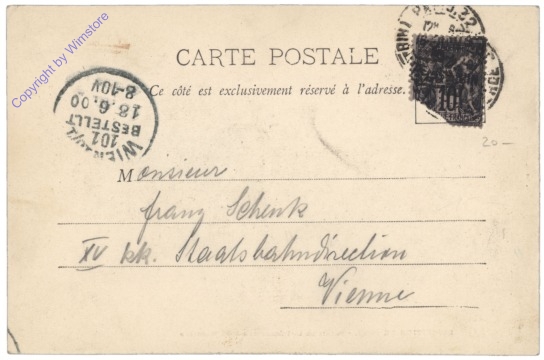 Copyright by Wimstore
CARTE POSTALE
Ce côté est exclusivement réservé à l'adresse.
WIEN
101
BESTELLT
18.6.00
8-10V
10
20 —
Monsieur
Franz Schenk
XV kk. Staatsbahndirection
Vienne